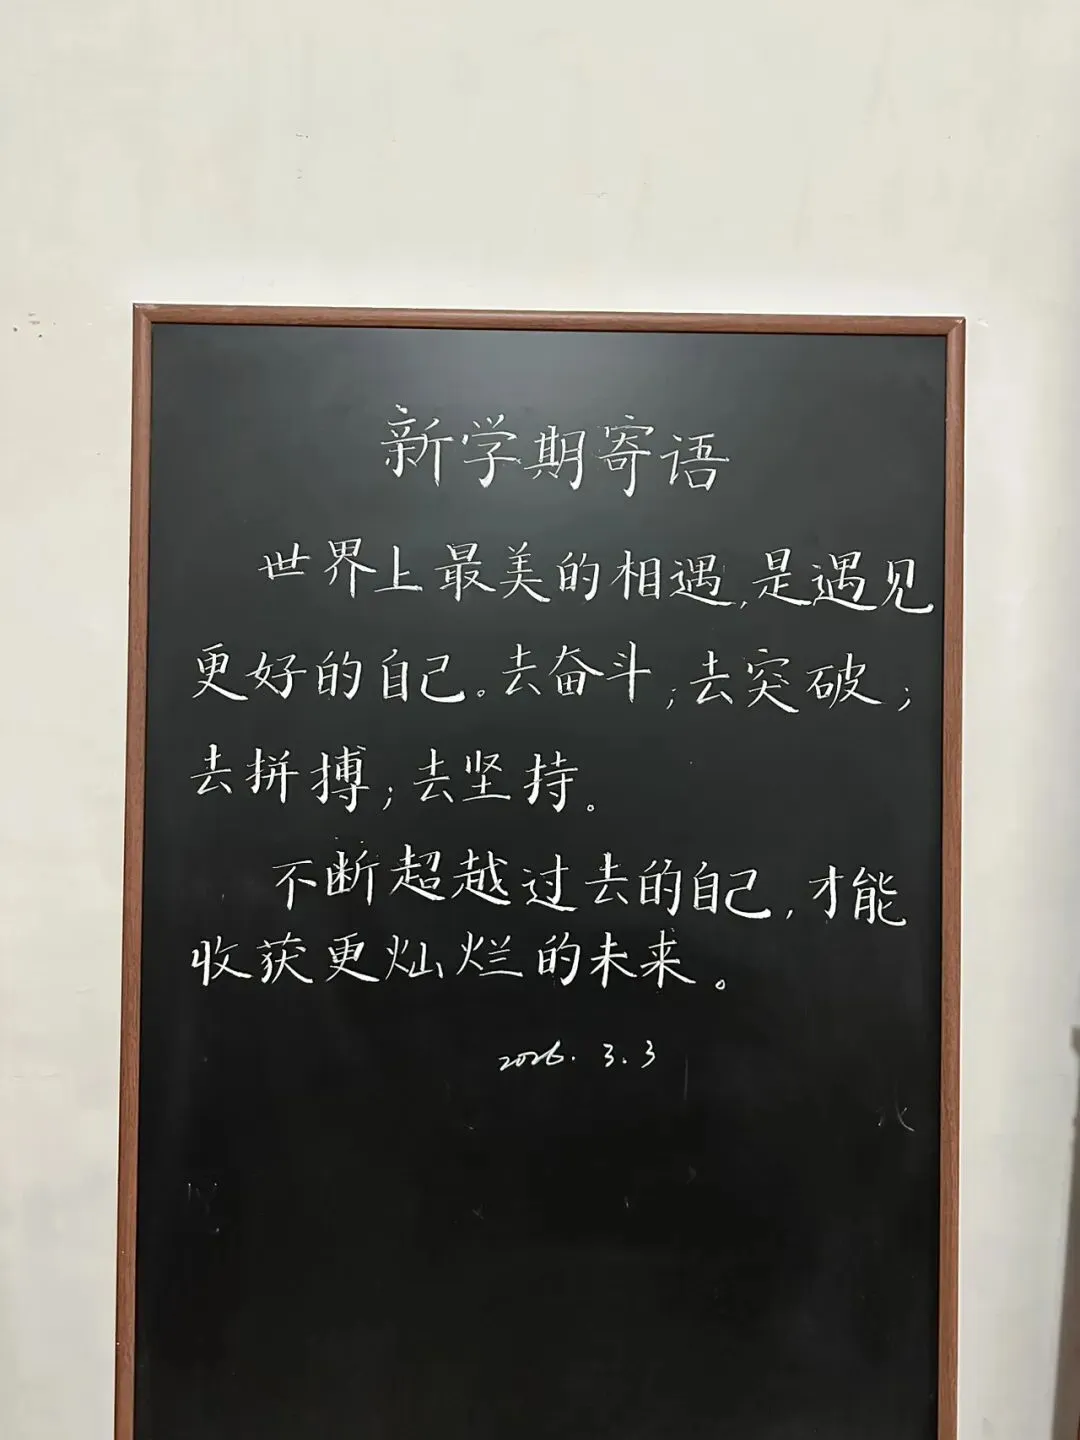 新学期寄语
世界上最美的相遇,是遇见
更好的自己。去奋斗;去突破;
去拼搏;去坚持。
不断超越过去的自己,才能
收获更灿烂的未来。
2026.3.3